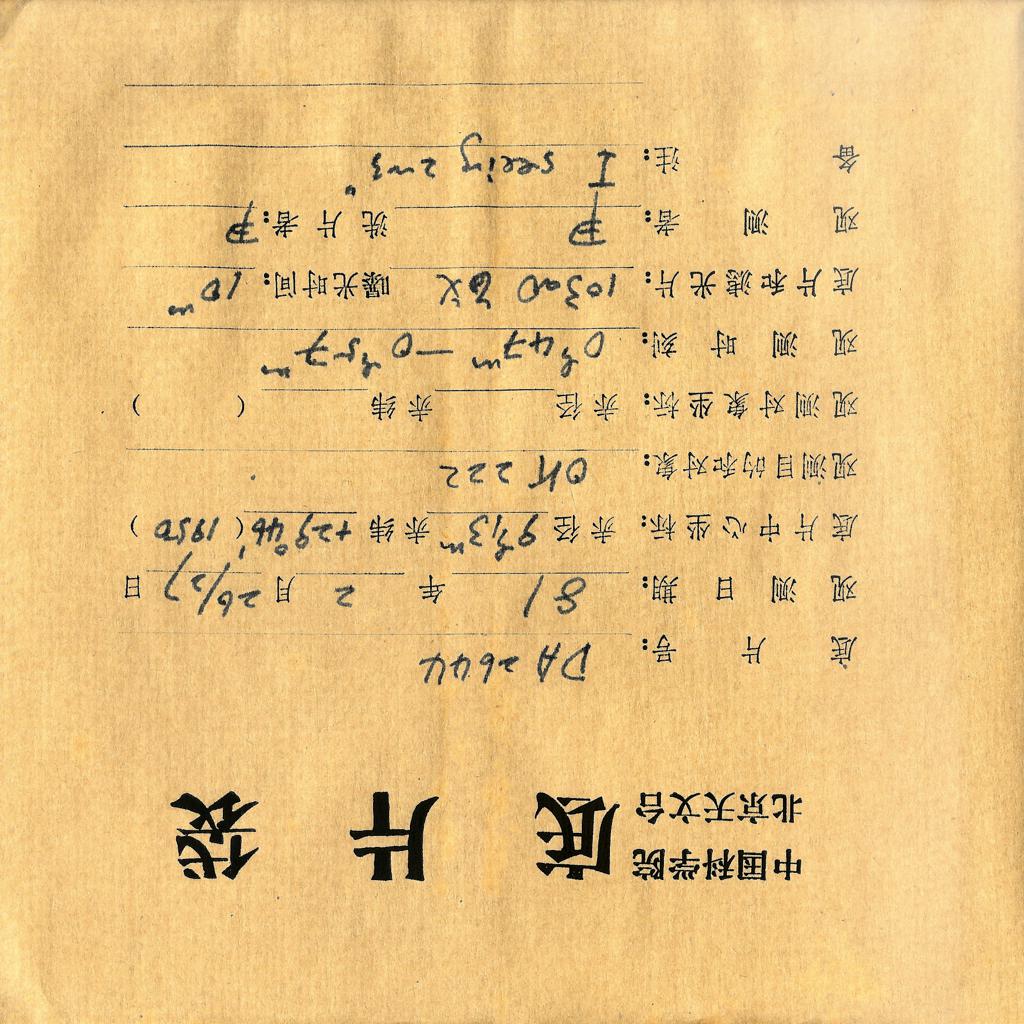 中国科学院
北京天文台 底片袋
底片号: DA2644
观测日期: 81年2月26/27日
底片中心坐标: 赤径9ʰ13ᵐ赤纬+29°46′(1950)
观测目的和对象: OK 222
观测对象坐标: 赤径 赤纬 ( )
观测时刻: 0ʰ47ᵐ—0ʰ57ᵐ
底片和滤光片: 103aO 曝光时间: 10ᵐ
观测者: 尹 洗片者: 尹
备注: I seeing 2"~3